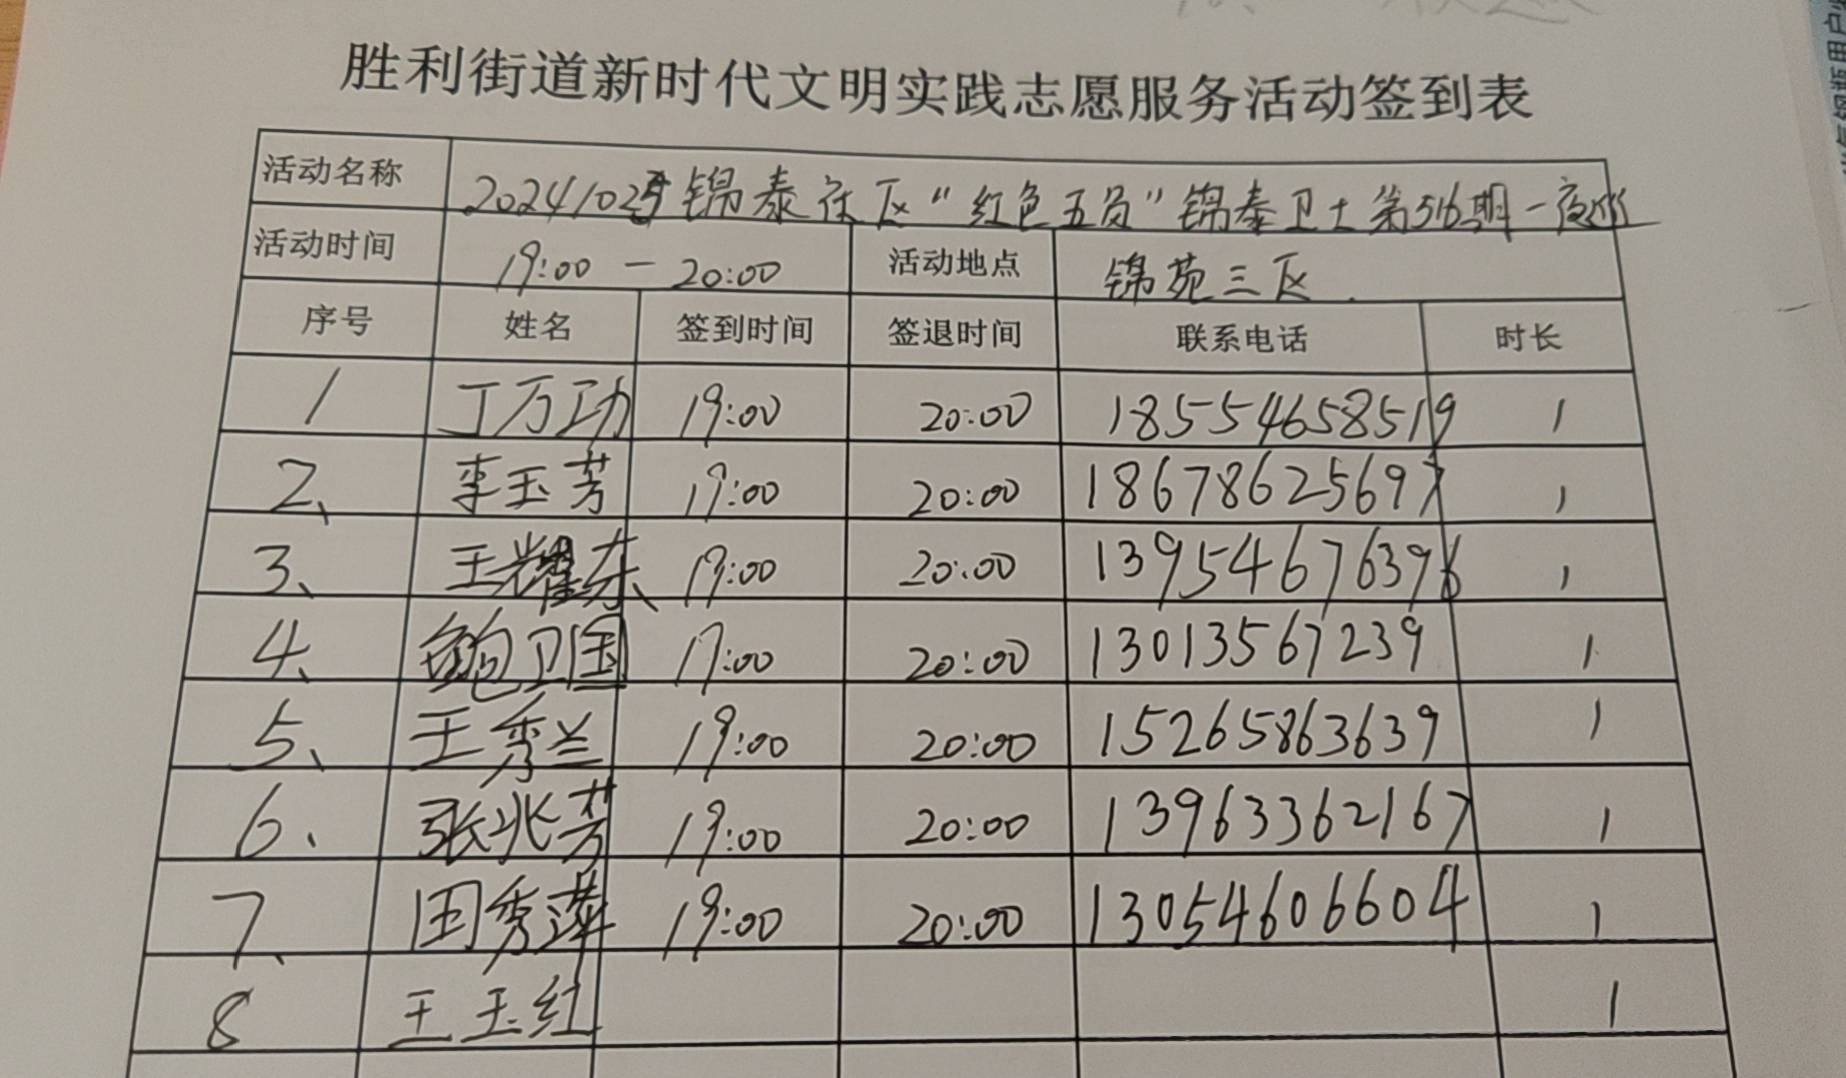 胜利街道新时代文明实践志愿服务活动签到表
活动名称 锦泰社区“红色五员”锦泰卫士第516期一夜巡
活动时间 19:00 - 20:00 活动地点 锦苑三区
序号 姓名 签到时间 签退时间 联系电话 时长
1 丁万功 19:00 20:00 18554658519 1
2、 李玉芳 19:00 20:00 18678625697 1
3、 王耀东 19:00 20:00 13954676396 1
4、 鲍卫国 19:00 20:00 13013567239 1
5、 王秀兰 19:00 20:00 15265863639 1
6、 张兆芳 19:00 20:00 13963362167 1
7、 田秀萍 19:00 20:00 13054606604 1
8 王玉红 1